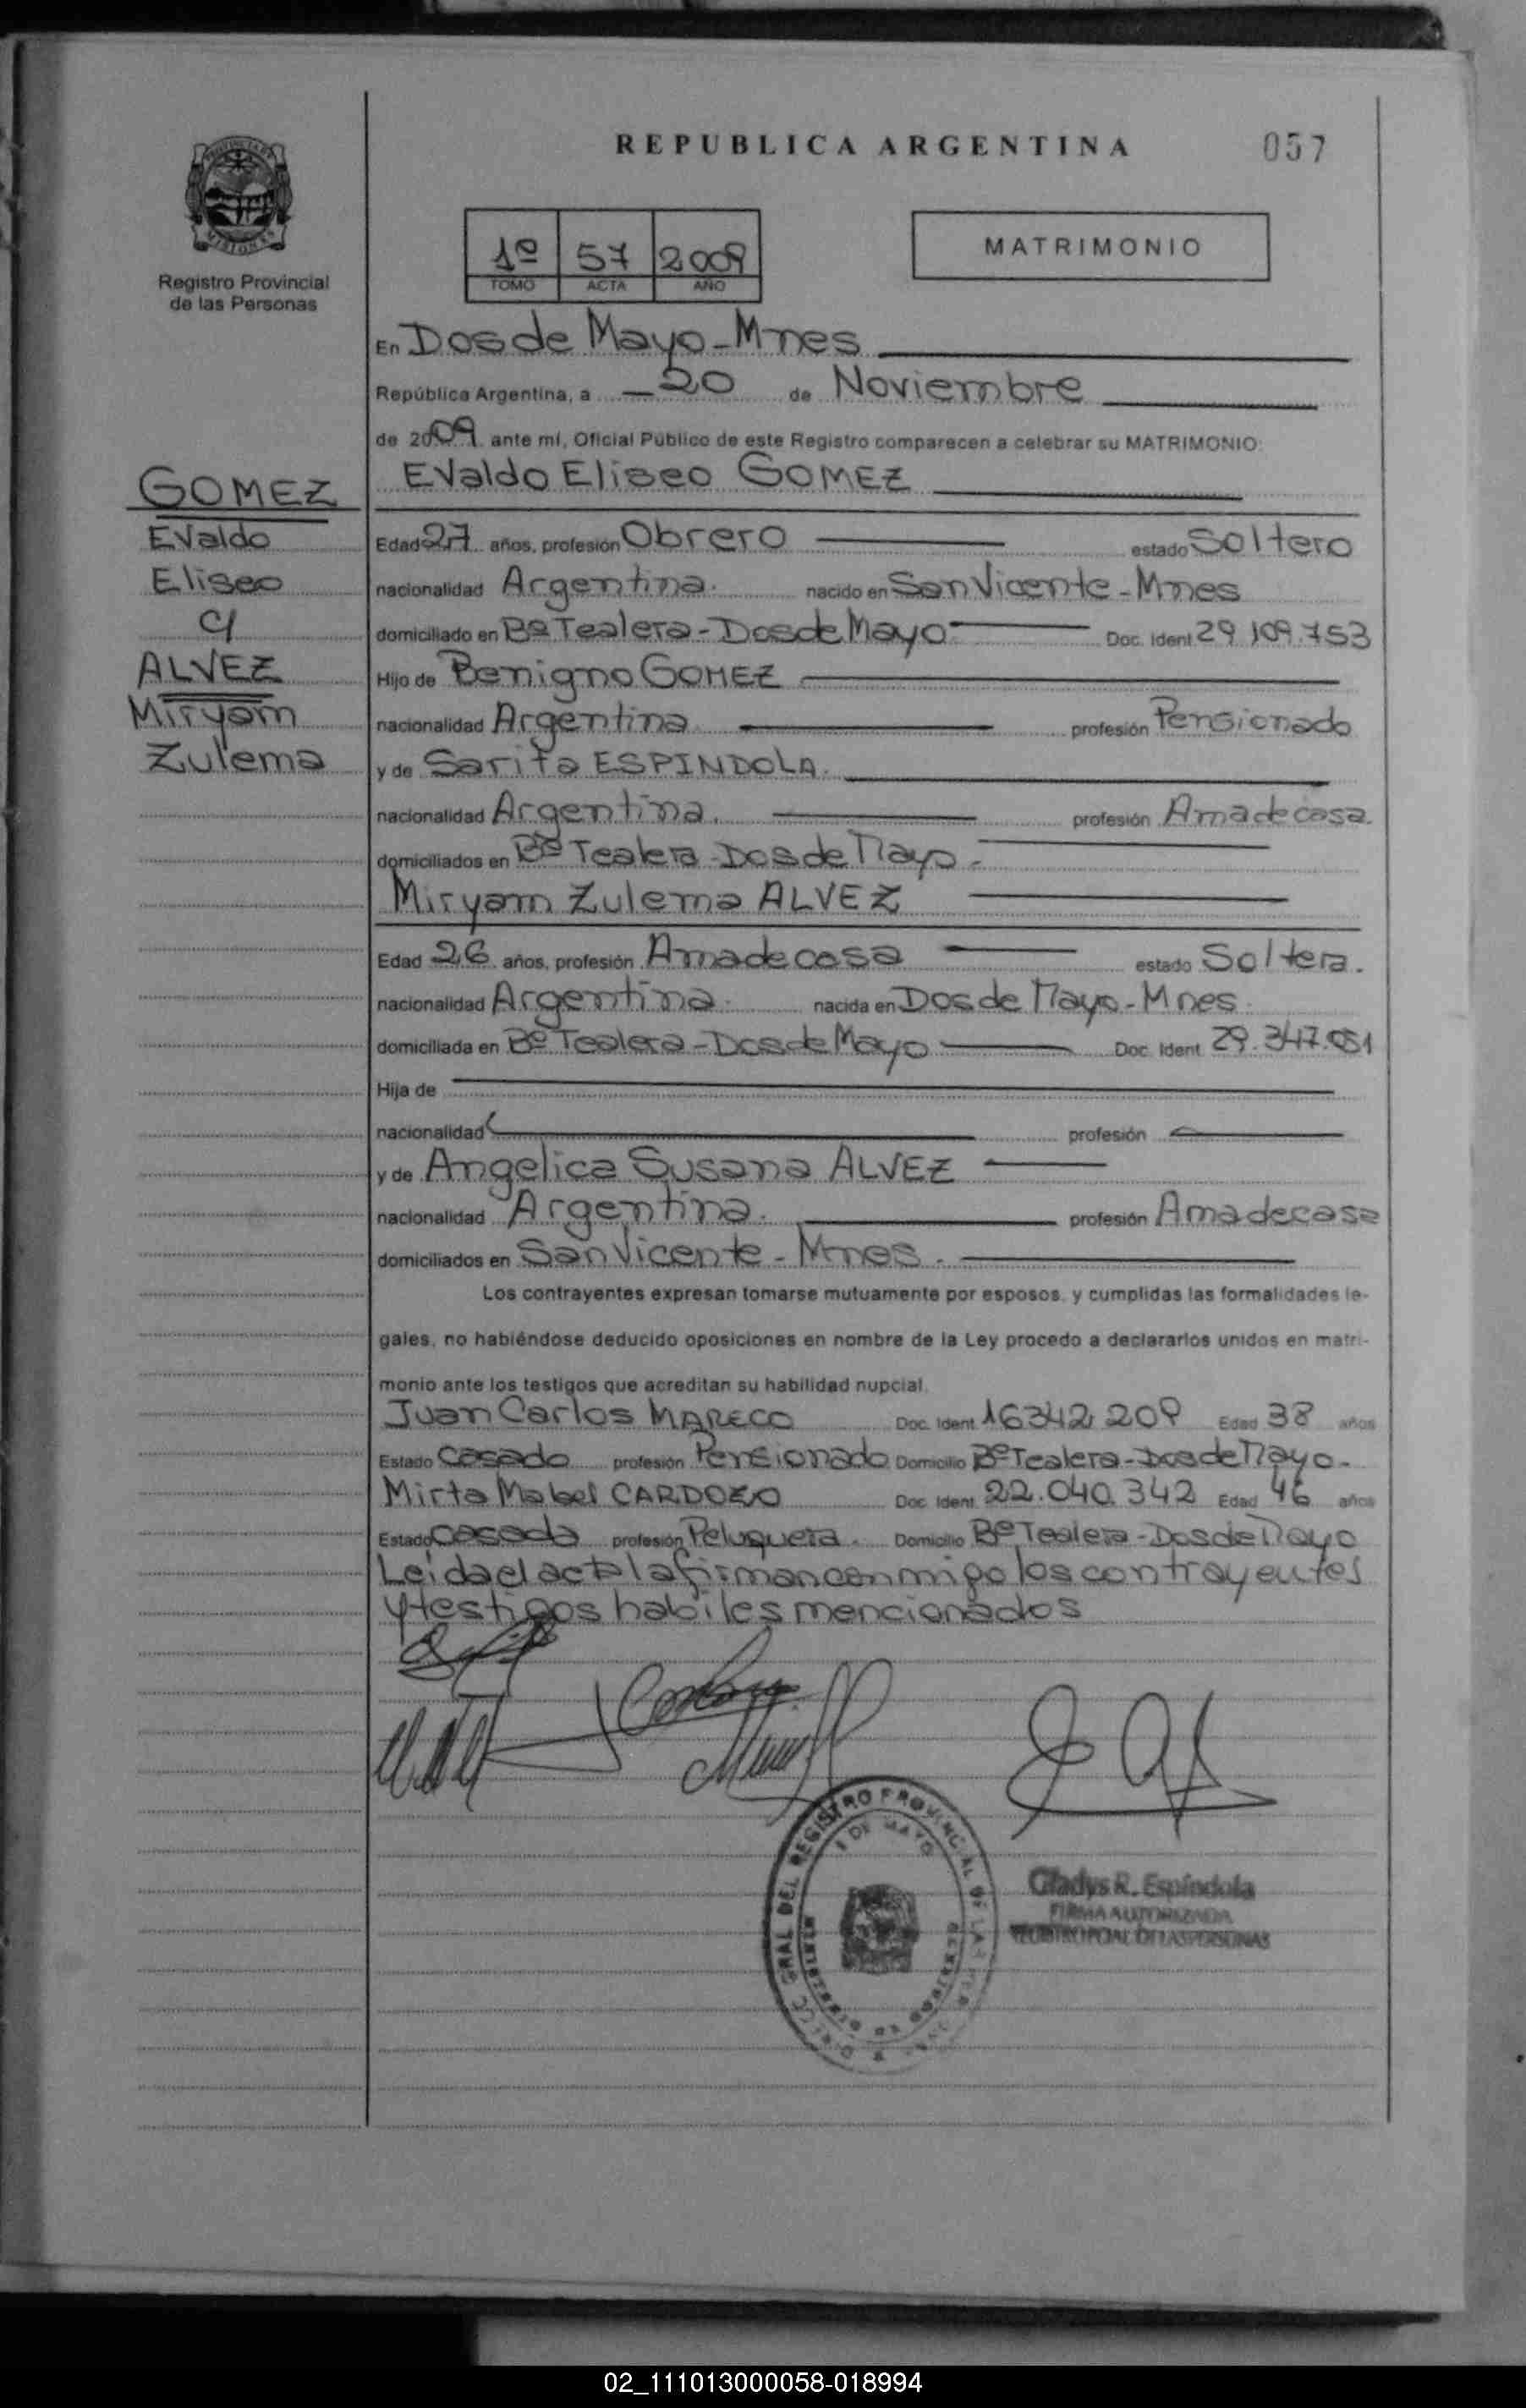 REPUBLICA ARGENTINA
057
PROVINCIA DE
MISIONES
Registro Provincial
de las Personas
1º 57 2009
TOMO ACTA AÑO
MATRIMONIO
En Dos de Mayo - Mnes
República Argentina, a 20 de Noviembre
de 2009 ante mí, Oficial Público de este Registro comparecen a celebrar su MATRIMONIO:
GOMEZ
Evaldo
Eliseo
c/
ALVEZ
Miryam
Zulema
Evaldo Eliseo GOMEZ
Edad 27 años, profesión Obrero estado Soltero
nacionalidad Argentina. nacido en San Vicente - Mnes
domiciliado en Bº Tealera - Dos de Mayo Doc. Ident 29.109.753
Hijo de Benigno GOMEZ
nacionalidad Argentina profesión Pensionado
y de Sarita ESPINDOLA.
nacionalidad Argentina. profesión Ama de casa.
domiciliados en Bº Tealera - Dos de Mayo -
Miryam Zulema ALVEZ
Edad 26 años, profesión Ama de casa estado Soltera.
nacionalidad Argentina. nacida en Dos de Mayo - Mnes.
domiciliada en Bº Tealera - Dos de Mayo Doc. Ident. 29.347.051
Hija de
nacionalidad profesión
y de Angelica Susana ALVEZ
nacionalidad Argentina. profesión Ama de casa
domiciliados en San Vicente - Mnes.
Los contrayentes expresan tomarse mutuamente por esposos, y cumplidas las formalidades le-
gales, no habiéndose deducido oposiciones en nombre de la Ley procedo a declararlos unidos en matri-
monio ante los testigos que acreditan su habilidad nupcial.
Juan Carlos MARECO Doc. Ident. 16342.209 Edad 38 años
Estado Casado profesión Pensionado Domicilio Bº Tealera - Dos de Mayo -
Mirta Mabel CARDOZO Doc. Ident. 22.040.342 Edad 46 años
Estado Casada profesión Peluquera. Domicilio Bº Tealera - Dos de Mayo
Leida el acta la firman conmigo los contrayentes
y testigos habiles mencionados
REGISTRO PROVINCIAL DE LAS
GRAL DEL
DE MAYO
Gladys R. Espíndola
FIRMA AUTORIZADA
REGISTRO PCIAL. DE LAS PERSONAS
02_111013000058-018994